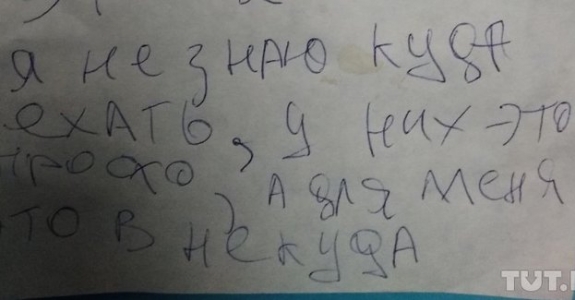 я не знаю куда
ехать, у них это
, а для меня
это в некуда
TUT.